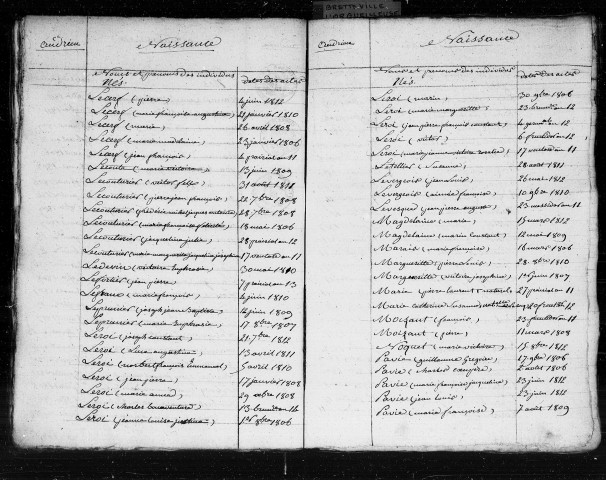 BRETTEVILLE
L'ORGUEILLEUSE
Naissance
Noms et prenoms des individus
Nés.
Dates des actes
Lecerf (pierre) 4 juin 1812
Lecerf (marie françoise augustine) 21 janvier 1810
Lecerf (marie) 26 avril 1808
Lecerf (marie madelaine) 23 janvier 1806
Lecerf (jean françois) 4 prairial an 11
Lecomte (marie victoire) 13 juin 1809
Lecouturier (victor felix) 31 aout 1811
Lecouturier (pierre jean françois) 22 7bre 1808
Lecouturier 28 7bre 1808
Lecouturier (marie françoise) 18 mai 1806
Lecouturier (jacqueline julie) 28 prairial an 12
Lecouturier (marie françoise jacqueline josephine) 17 ventose an 11
Ledevin (victoire euphrasie) 30 mai 1810
Lefortier (jean pierre) 7 prairial an 13
Lefranc (marie françois) 4 juin 1810
Leprunier (joseph jean baptiste) 14 juin 1809
Leprunier (marie euphrasie) 17 8bre 1807
Leroi (joseph constant) 21 7bre 1812
Leroi (Luce augustine) 13 avril 1811
Leroi (norbert françois emmanuel) 5 avril 1810
Leroi (jean pierre) 17 janvier 1808
Leroi (marie anne) 29 1808
Leroi (charles bonaventure) 13 brum. an 14
Leroi (jeanne louise justine) 1er 8bre 1806
Naissance
Noms et prenoms des individus
Nés.
Dates des actes
Leroi (marin) 30 9bre 1806
Leroi (marie marguerite) 23 brum. an 12
Leroi (jean pierre françois constant) an 12
Leroi (victor) 6 an 12
Leroi 17 ventose an 11
Letellier (Suzanne) 28 aout 1811
Levergeois (jean Louis) 26 mai 1812
Levergeois (aimée françoise) 10 9bre 1810
Levesque (jean pierre auguste) 23 messidor an 11
Magdelaine (marie) 15 mars 1812
Magdelaine (marie constant) 12 mai 1809
Marais (marie françoise) 16 mars 1806
Marguerite (pierre Louis) 28 8bre 1810
Marguerite (victoire josephine) 1er juin 1807
Marie (pierre laurent naturel) 27 prairial an 12
Marie catherine Susanne an 12
Moisant (francois) an 12
Moisant (pierre) 11 mars 1808
Noquet (marie victoire) 15 8bre 1812
Pavie (guillaume Gregoire) 17 9bre 1806
Pavie (charles onesipe) 2 aout 1806
Pavie (marie françoise jacqueline) 23 juin 1812
Pavie (jean louis) 23 juin 1812
Pavie (marie françoise) 7 aout 1809